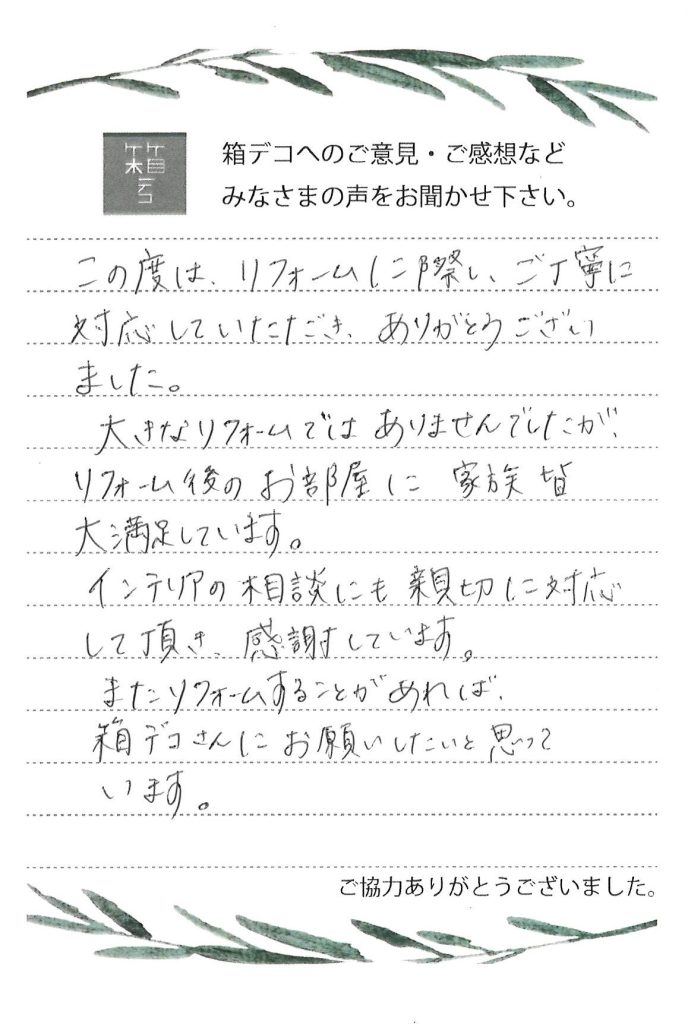 箱デコ
箱デコへのご意見・ご感想など
みなさまの声をお聞かせ下さい。
この度は、リフォームに際し、ご丁寧に
対応していただき、ありがとうござい
ました。
大きなリフォームではありませんでしたが、
リフォーム後のお部屋に 家族 皆
大満足しています。
インテリアの相談にも親切に対応
して頂き、感謝しています。
またリフォームすることがあれば、
箱デコさんにお願いしたいと思って
います。
ご協力ありがとうございました。